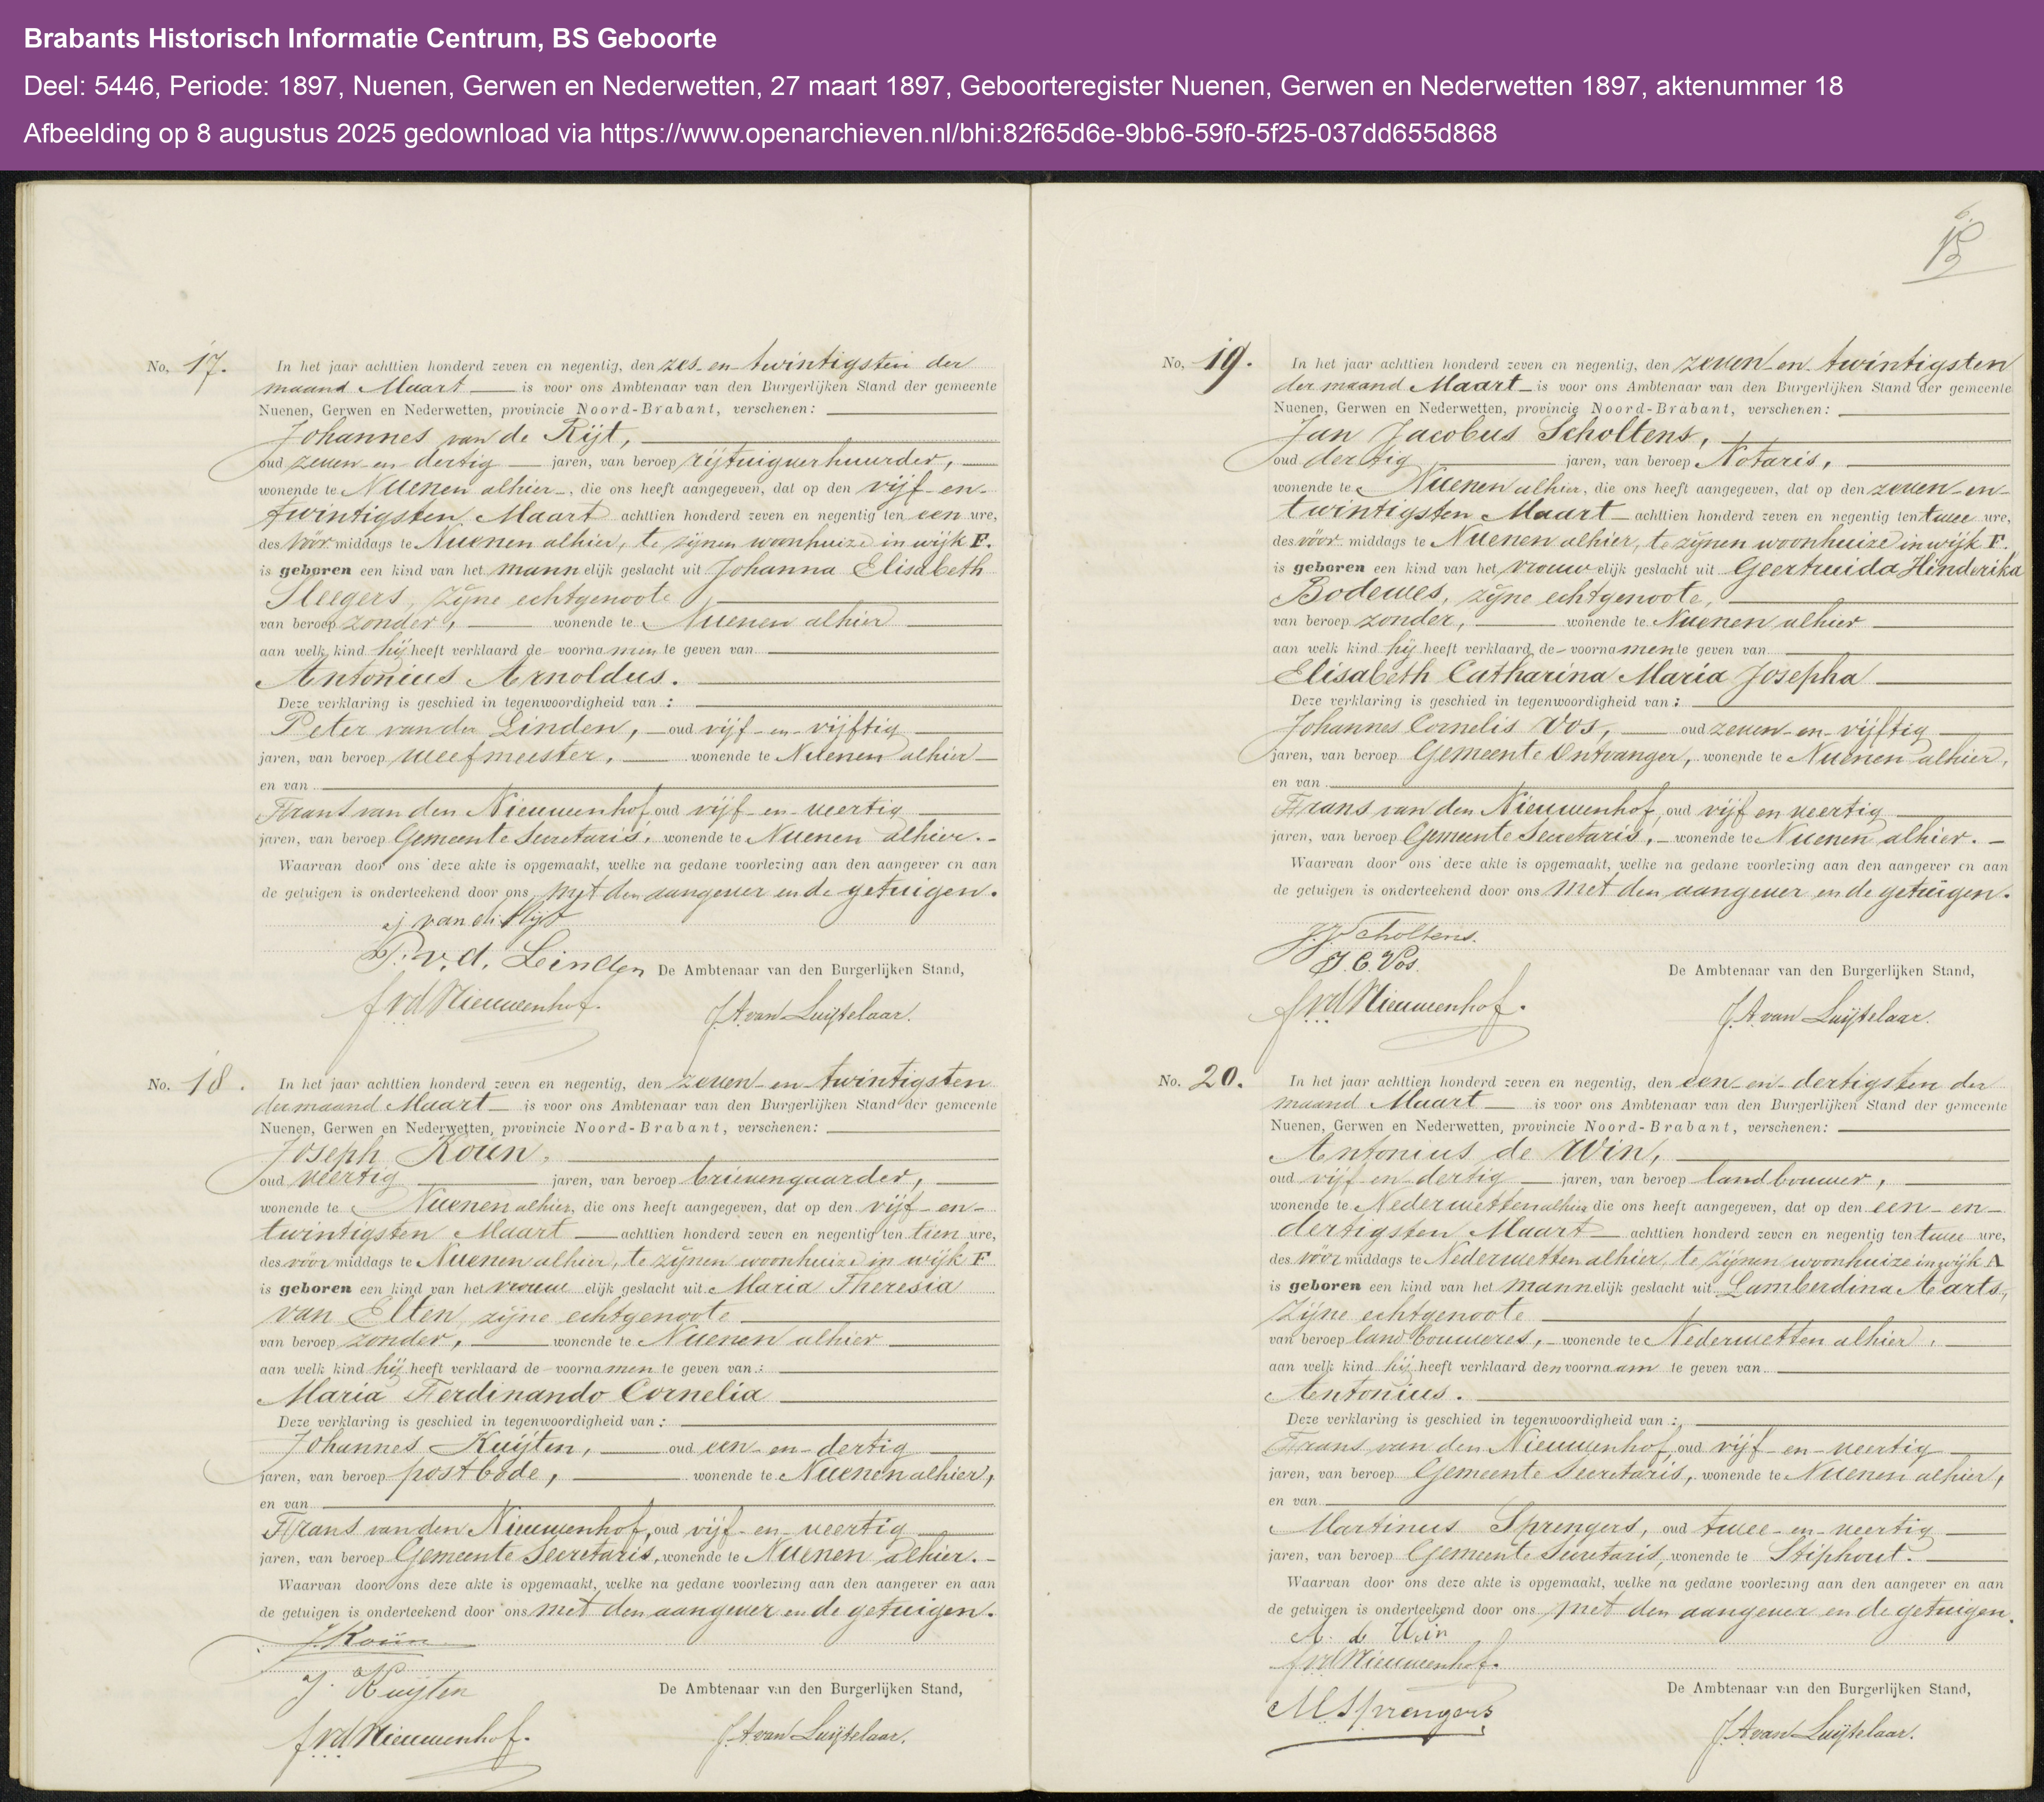 Brabants Historisch Informatie Centrum, BS Geboorte
Deel: 5446, Periode: 1897, Nuenen, Gerwen en Nederwetten, 27 maart 1897, Geboorteregister Nuenen, Gerwen en Nederwetten 1897, aktenummer 18
Afbeelding op 8 augustus 2025 gedownload via https://www.openarchieven.nl/bhi:82f65d6e-9bb6-59f0-5f25-037dd655d868
No. 17. In het jaar achttien honderd zeven en negentig, den zes en twintigsten der
maand Maart is voor ons Ambtenaar van den Burgerlijken Stand der gemeente
Nuenen, Gerwen en Nederwetten, provincie Noord-Brabant, verschenen:
Johannes van de Rijt,
oud zeven en dertig jaren, van beroep rijtuigverhuurder,
wonende te Nuenen alhier, die ons heeft aangegeven, dat op den vijf en
twintigsten Maart achttien honderd zeven en negentig ten een ure,
des vóór middags te Nuenen alhier, te zijnen woonhuize in wijk F.
is geboren een kind van het mannelijk geslacht uit Johanna Elisabeth
Sleegers, zijne echtgenoote
van beroep zonder, wonende te Nuenen alhier
aan welk kind hij heeft verklaard de voornamen te geven van
Antonius Arnoldus.
Deze verklaring is geschied in tegenwoordigheid van :
Peter van der Linden, oud vijf en vijftig
jaren, van beroep weefmeester, wonende te Nuenen alhier
en van
Frans van den Nieuwenhof, oud vijf en veertig
jaren, van beroep Gemeente Secretaris, wonende te Nuenen alhier.
Waarvan door ons deze akte is opgemaakt, welke na gedane voorlezing aan den aangever en aan
de getuigen is onderteekend door ons met den aangever en de getuigen.
j van de Rijt
P. v. d. Linden De Ambtenaar van den Burgerlijken Stand,
f vd Nieuwenhof. J. A. van Luijtelaar.
No. 18. In het jaar achttien honderd zeven en negentig, den zeven en twintigsten
der maand Maart is voor ons Ambtenaar van den Burgerlijken Stand der gemeente
Nuenen, Gerwen en Nederwetten, provincie Noord-Brabant, verschenen:
Joseph Koün,
oud veertig jaren, van beroep brievengaarder,
wonende te Nuenen alhier, die ons heeft aangegeven, dat op den vijf en
twintigsten Maart achttien honderd zeven en negentig ten tien ure,
des vóór middags te Nuenen alhier, te zijnen woonhuize in wijk F
is geboren een kind van het vrouwelijk geslacht uit Maria Theresia
van Elten, zijne echtgenoote
van beroep zonder, wonende te Nuenen alhier
aan welk kind hij heeft verklaard de voornamen te geven van :
Maria Ferdinando Cornelia
Deze verklaring is geschied in tegenwoordigheid van :
Johannes Kuijten, oud een en dertig
jaren, van beroep postbode, wonende te Nuenen alhier,
en van
Frans van den Nieuwenhof, oud vijf en veertig
jaren, van beroep Gemeente Secretaris, wonende te Nuenen alhier.
Waarvan door ons deze akte is opgemaakt, welke na gedane voorlezing aan den aangever en aan
de getuigen is onderteekend door ons met den aangever en de getuigen.
J. Koün
J. Kuijten De Ambtenaar van den Burgerlijken Stand,
f vd Nieuwenhof. J. A. van Luijtelaar.
No. 19. In het jaar achttien honderd zeven en negentig, den zeven en twintigsten
der maand Maart is voor ons Ambtenaar van den Burgerlijken Stand der gemeente
Nuenen, Gerwen en Nederwetten, provincie Noord-Brabant, verschenen:
Jan Jacobus Scholtens,
oud dertig jaren, van beroep Notaris,
wonende te Nuenen alhier, die ons heeft aangegeven, dat op den zeven en
twintigsten Maart achttien honderd zeven en negentig ten twee ure,
des vóór middags te Nuenen alhier, te zijnen woonhuize in wijk F.
is geboren een kind van het vrouwelijk geslacht uit Geertruida Hinderika
Bodewes, zijne echtgenoote,
van beroep zonder, wonende te Nuenen alhier
aan welk kind hij heeft verklaard de voornamen te geven van
Elisabeth Catharina Maria Josepha
Deze verklaring is geschied in tegenwoordigheid van :
Johannes Cornelis Vos, oud zeven en vijftig
jaren, van beroep Gemeente Ontvanger, wonende te Nuenen alhier,
en van
Frans van den Nieuwenhof, oud vijf en veertig
jaren, van beroep Gemeente Secretaris, wonende te Nuenen alhier.
Waarvan door ons deze akte is opgemaakt, welke na gedane voorlezing aan den aangever en aan
de getuigen is onderteekend door ons met den aangever en de getuigen.
J.J. Scholtens.
J. C. Vos. De Ambtenaar van den Burgerlijken Stand,
f vd Nieuwenhof. J. A. van Luijtelaar.
No. 20. In het jaar achttien honderd zeven en negentig, den een en dertigsten der
maand Maart is voor ons Ambtenaar van den Burgerlijken Stand der gemeente
Nuenen, Gerwen en Nederwetten, provincie Noord-Brabant, verschenen:
Antonius de Win,
oud vijf en dertig jaren, van beroep landbouwer,
wonende te Nederwetten alhier die ons heeft aangegeven, dat op den een en
dertigsten Maart achttien honderd zeven en negentig ten twee ure,
des vóór middags te Nederwetten alhier, te zijnen woonhuize in wijk A
is geboren een kind van het mannelijk geslacht uit Lamberdina Aarts,
zijne echtgenoote
van beroep landbouweres, wonende te Nederwetten alhier.
aan welk kind hij heeft verklaard den voornaam te geven van
Antonius.
Deze verklaring is geschied in tegenwoordigheid van :
Frans van den Nieuwenhof, oud vijf en veertig
jaren, van beroep Gemeente Secretaris, wonende te Nuenen alhier,
en van
Martinus Sprengers, oud twee en veertig
jaren, van beroep Gemeente Secretaris, wonende te Stiphout.
Waarvan door ons deze akte is opgemaakt, welke na gedane voorlezing aan den aangever en aan
de getuigen is onderteekend door ons met den aangever en de getuigen.
A. de Win
f vd Nieuwenhof. De Ambtenaar van den Burgerlijken Stand,
M Sprengers J. A. van Luijtelaar.